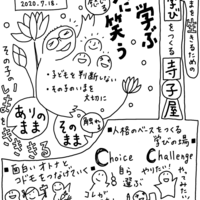 2020.7.18.
学ぶ
に笑う
きるための
学びをつくる
寺子屋
・子どもを判断しない
・その子のいまを
大切に
ありの
まま
そのまま
その子の
いまを
生きる
人格のベースをつくる
学びの場
Choice
Challenge
自ら
選ぶ
やりたい!
やってみたい
面白いオトナと
コドモをつなげていく